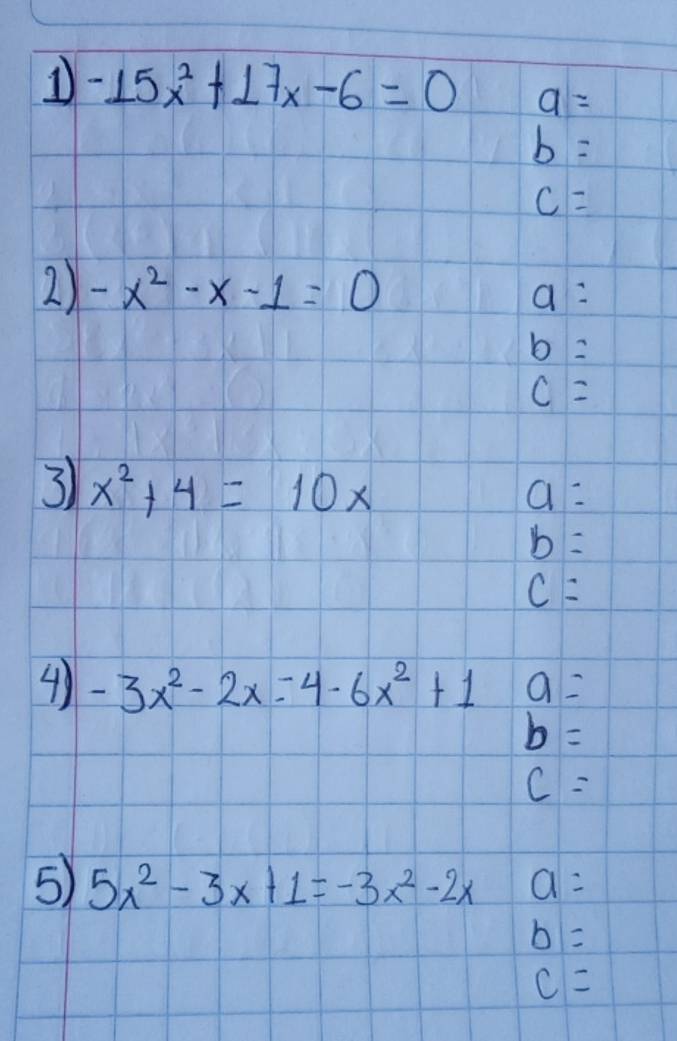 1) -15x² + 17x - 6 = 0 a =
b =
c =
2) - x² - x - 1 = 0 a =
b =
c =
3) x² + 4 = 10x a =
b =
c =
4) - 3x² - 2x = 4 - 6x² + 1 a =
b =
c =
5) 5x² - 3x + 1 = -3x² - 2x a =
b =
c =